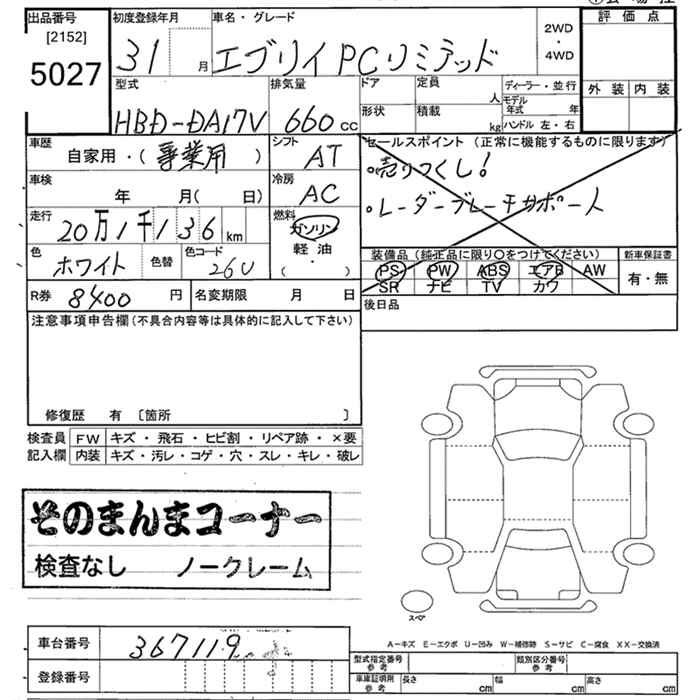 出品番号
[2152]
5027
初度登録年月
31 月
車名・グレード
エブリイPCリミテッド
2WD
・
4WD
評価点
外装 内装
型式
HBD-DA17V
排気量
660 cc
ドア
形状
定員
人
積載
kg
ディーラー・並行
モデル年式 年
ハンドル 左・右
車歴
自家用・(事業用)
シフト
AT
車検
年 月( 日)
冷房
AC
走行
20万1千136 km
燃料
ガソリン
軽・油
( ・ )
色
ホワイト
色替
色コード
26U
R券 8400 円
名変期限 月 日
セールスポイント(正常に機能するものに限ります)
・売りつくし!
・レーダーブレーキサポート
装備品(純正品に限り○をつけてください)
PS PW ABS エアB AW
SR ナビ TV カワ
新車保証書
有・無
後日品
注意事項申告欄(不具合内容等は具体的に記入して下さい)
修復歴 有 〔箇所 〕
検査員
記入欄
FW キズ・飛石・ヒビ割・リペア跡・×要
内装 キズ・汚レ・コゲ・穴・スレ・キレ・破レ
そのまんまコーナー
検査なし ノークレーム
スペア
A-キズ E-エクボ U-凹み W-補修跡 S-サビ C-腐食 XX-交換済
車台番号 367119
登録番号
型式指定番号
参考
類別区分番号
参考
車庫証明用
参考
長さ cm 幅 cm 高さ cm